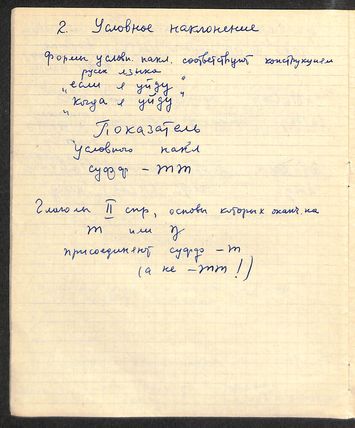 2. Условное наклонение
Формы условн. накл. соответствуют конструкциям
русск языка
„если я уйду"
„когда я уйду"
Показатель
условного накл
суфф -тт
Глаголы II спр, основы которых оканч. на
т или
присоединяют суфф -т
(а не -тт!)